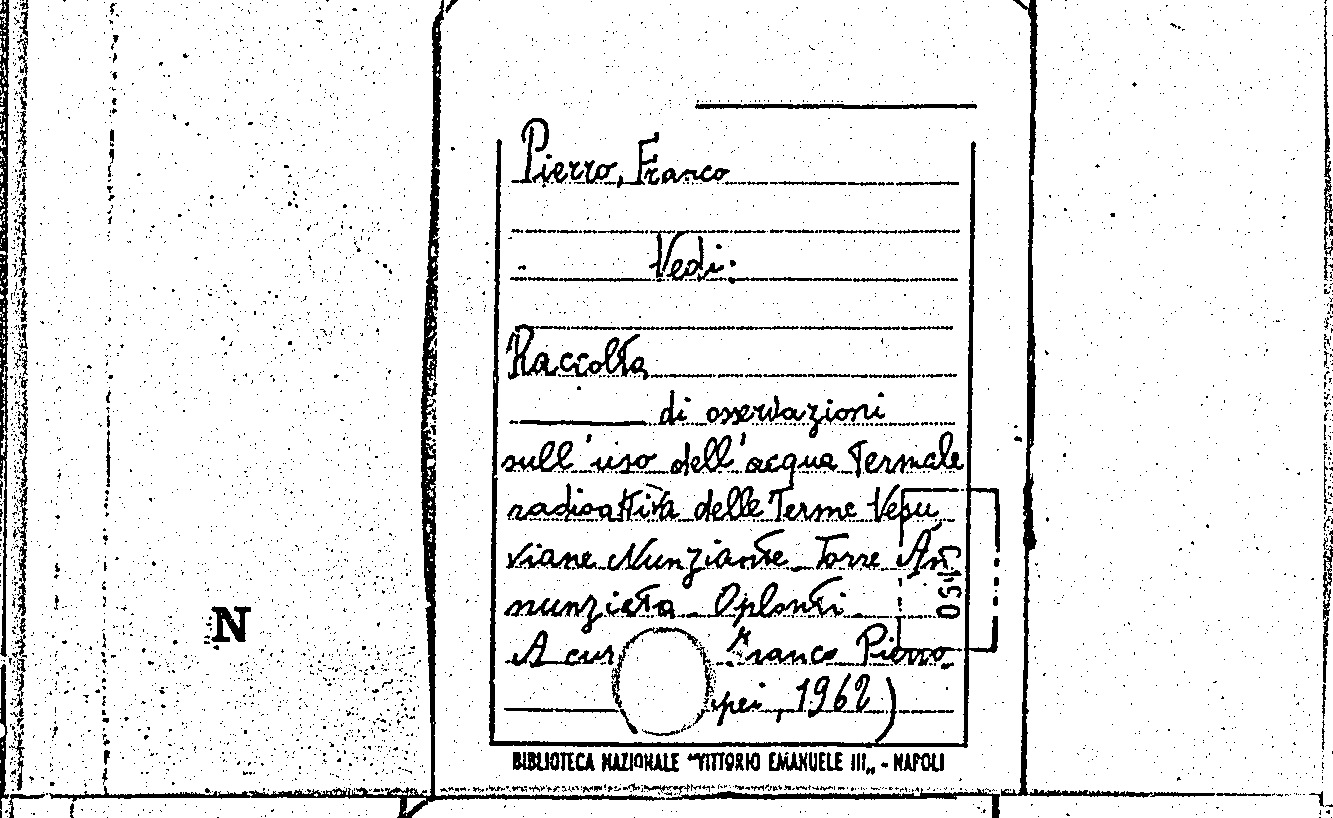 Pierro, Franco
Vedi:
Raccolta
di osservazioni
sull'uso dell'acqua termale
radioattiva delle Terme Vesu
viane Nunziante. Torre An
nunziata. Oplonti.
A cur Franco Pierro.
pei, 1962)
0545
N
BIBLIOTECA NAZIONALE "VITTORIO EMANUELE III„ - NAPOLI